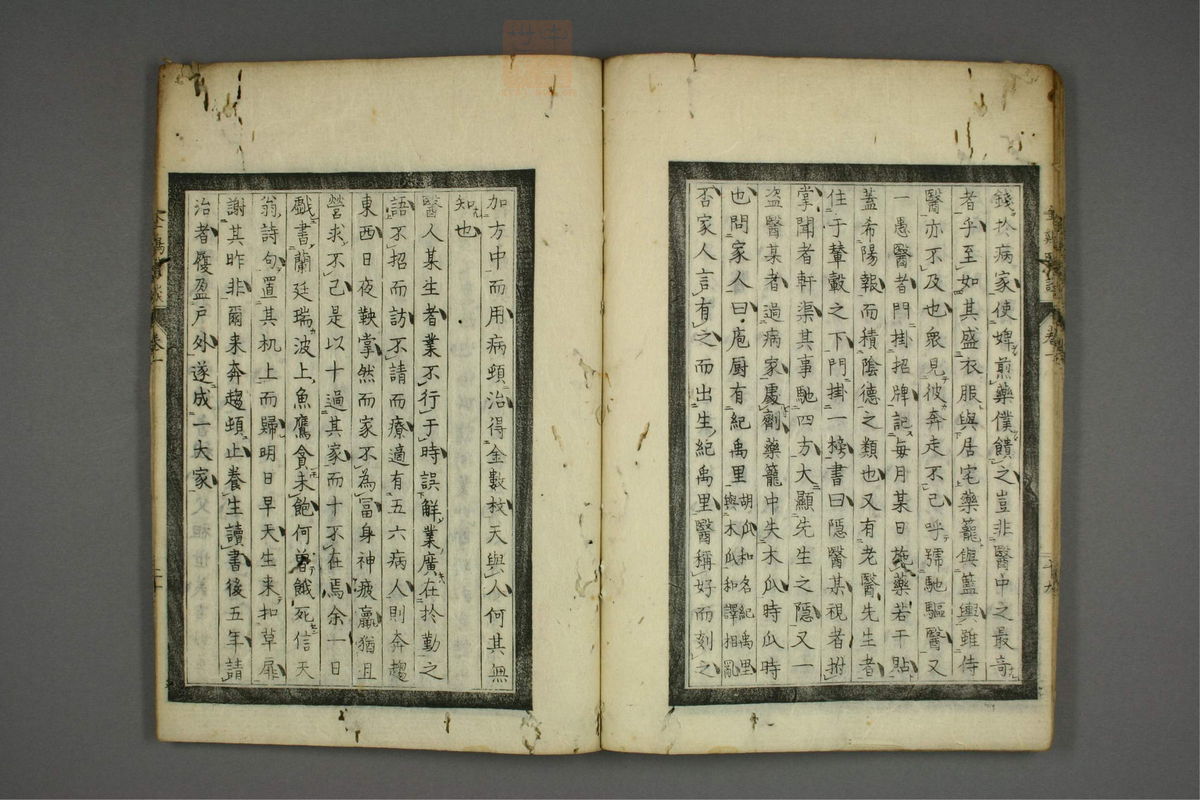 錢於病家使婢煎藥僕饋之豈非醫中之最奇
者乎至如其盛衣服與居宅藥籠與籃輿雖侍
醫亦不及也衆見彼奔走不已呼號馳驅醫又
一愚醫者門掛招牌記每月某日施藥若干貼
蓋希陽報而積陰德之類也又有老醫先生者
住于輦轂之下門掛一榜書曰隱醫某視者拊
掌聞者軒渠其事馳四方大顯先生之隱又一
盗醫某者過病家處劑藥籠中失木瓜時瓜時
也問家人曰庖厨有紀禹里胡瓜和名紀禹里與木瓜和譯相亂
否家人言有之而出生紀禹里醫稱好而刻之
加方中而用病頓治得金數枚天與人何其無
知也
醫人某生者業不行于時誤解業廣在於勤之
語不招而訪不請而療適有五六病人則奔趨
東西日夜鞅掌然而家不為冨身神疲羸猶且
營求不已是以十過其家而十不在焉余一日
戯書蘭廷瑞波上魚鷹貪未飽何曽餓死信天
翁詩句置其机上而歸明日早天生来扣草扉
謝其昨非爾来奔趨頓止養生讀書後五年請
治者履盈戸外遂成一大家
卷一